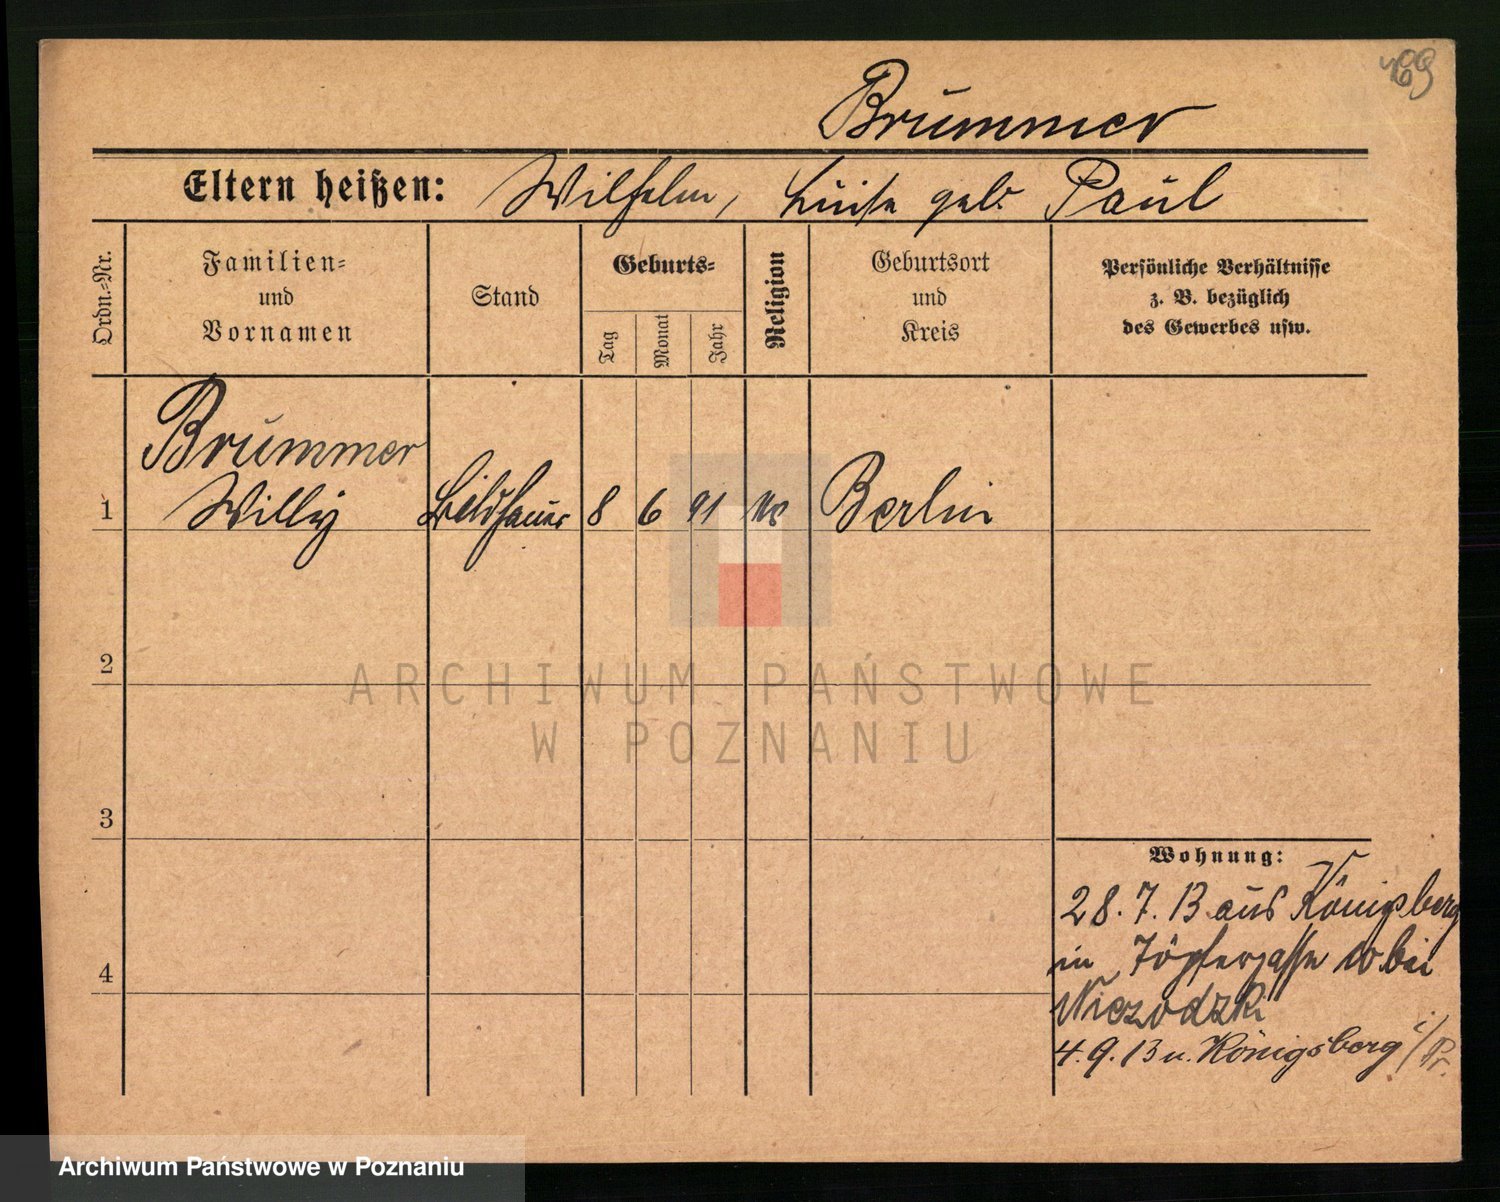 469
Brummer
Eltern heißen: Wilhelm, Luise geb. Paul
Ordn.-Nr.
Familien-
und
Vornamen
Stand
Geburts-
Tag
Monat
Jahr
Religion
Geburtsort
und
Kreis
Persönliche Verhältnisse
z. B. bezüglich
des Gewerbes usw.
Brummer
1 Willy Bildhauer 8 6 91 Berlin
2
3
4
Wohnung:
28. 7. 13 aus Königsberg
in Töpfergasse 10 bei
4. 9. 13 n. Königsberg i/Pr.
ARCHIWUM PAŃSTWOWE
W POZNANIU
Archiwum Państwowe w Poznaniu